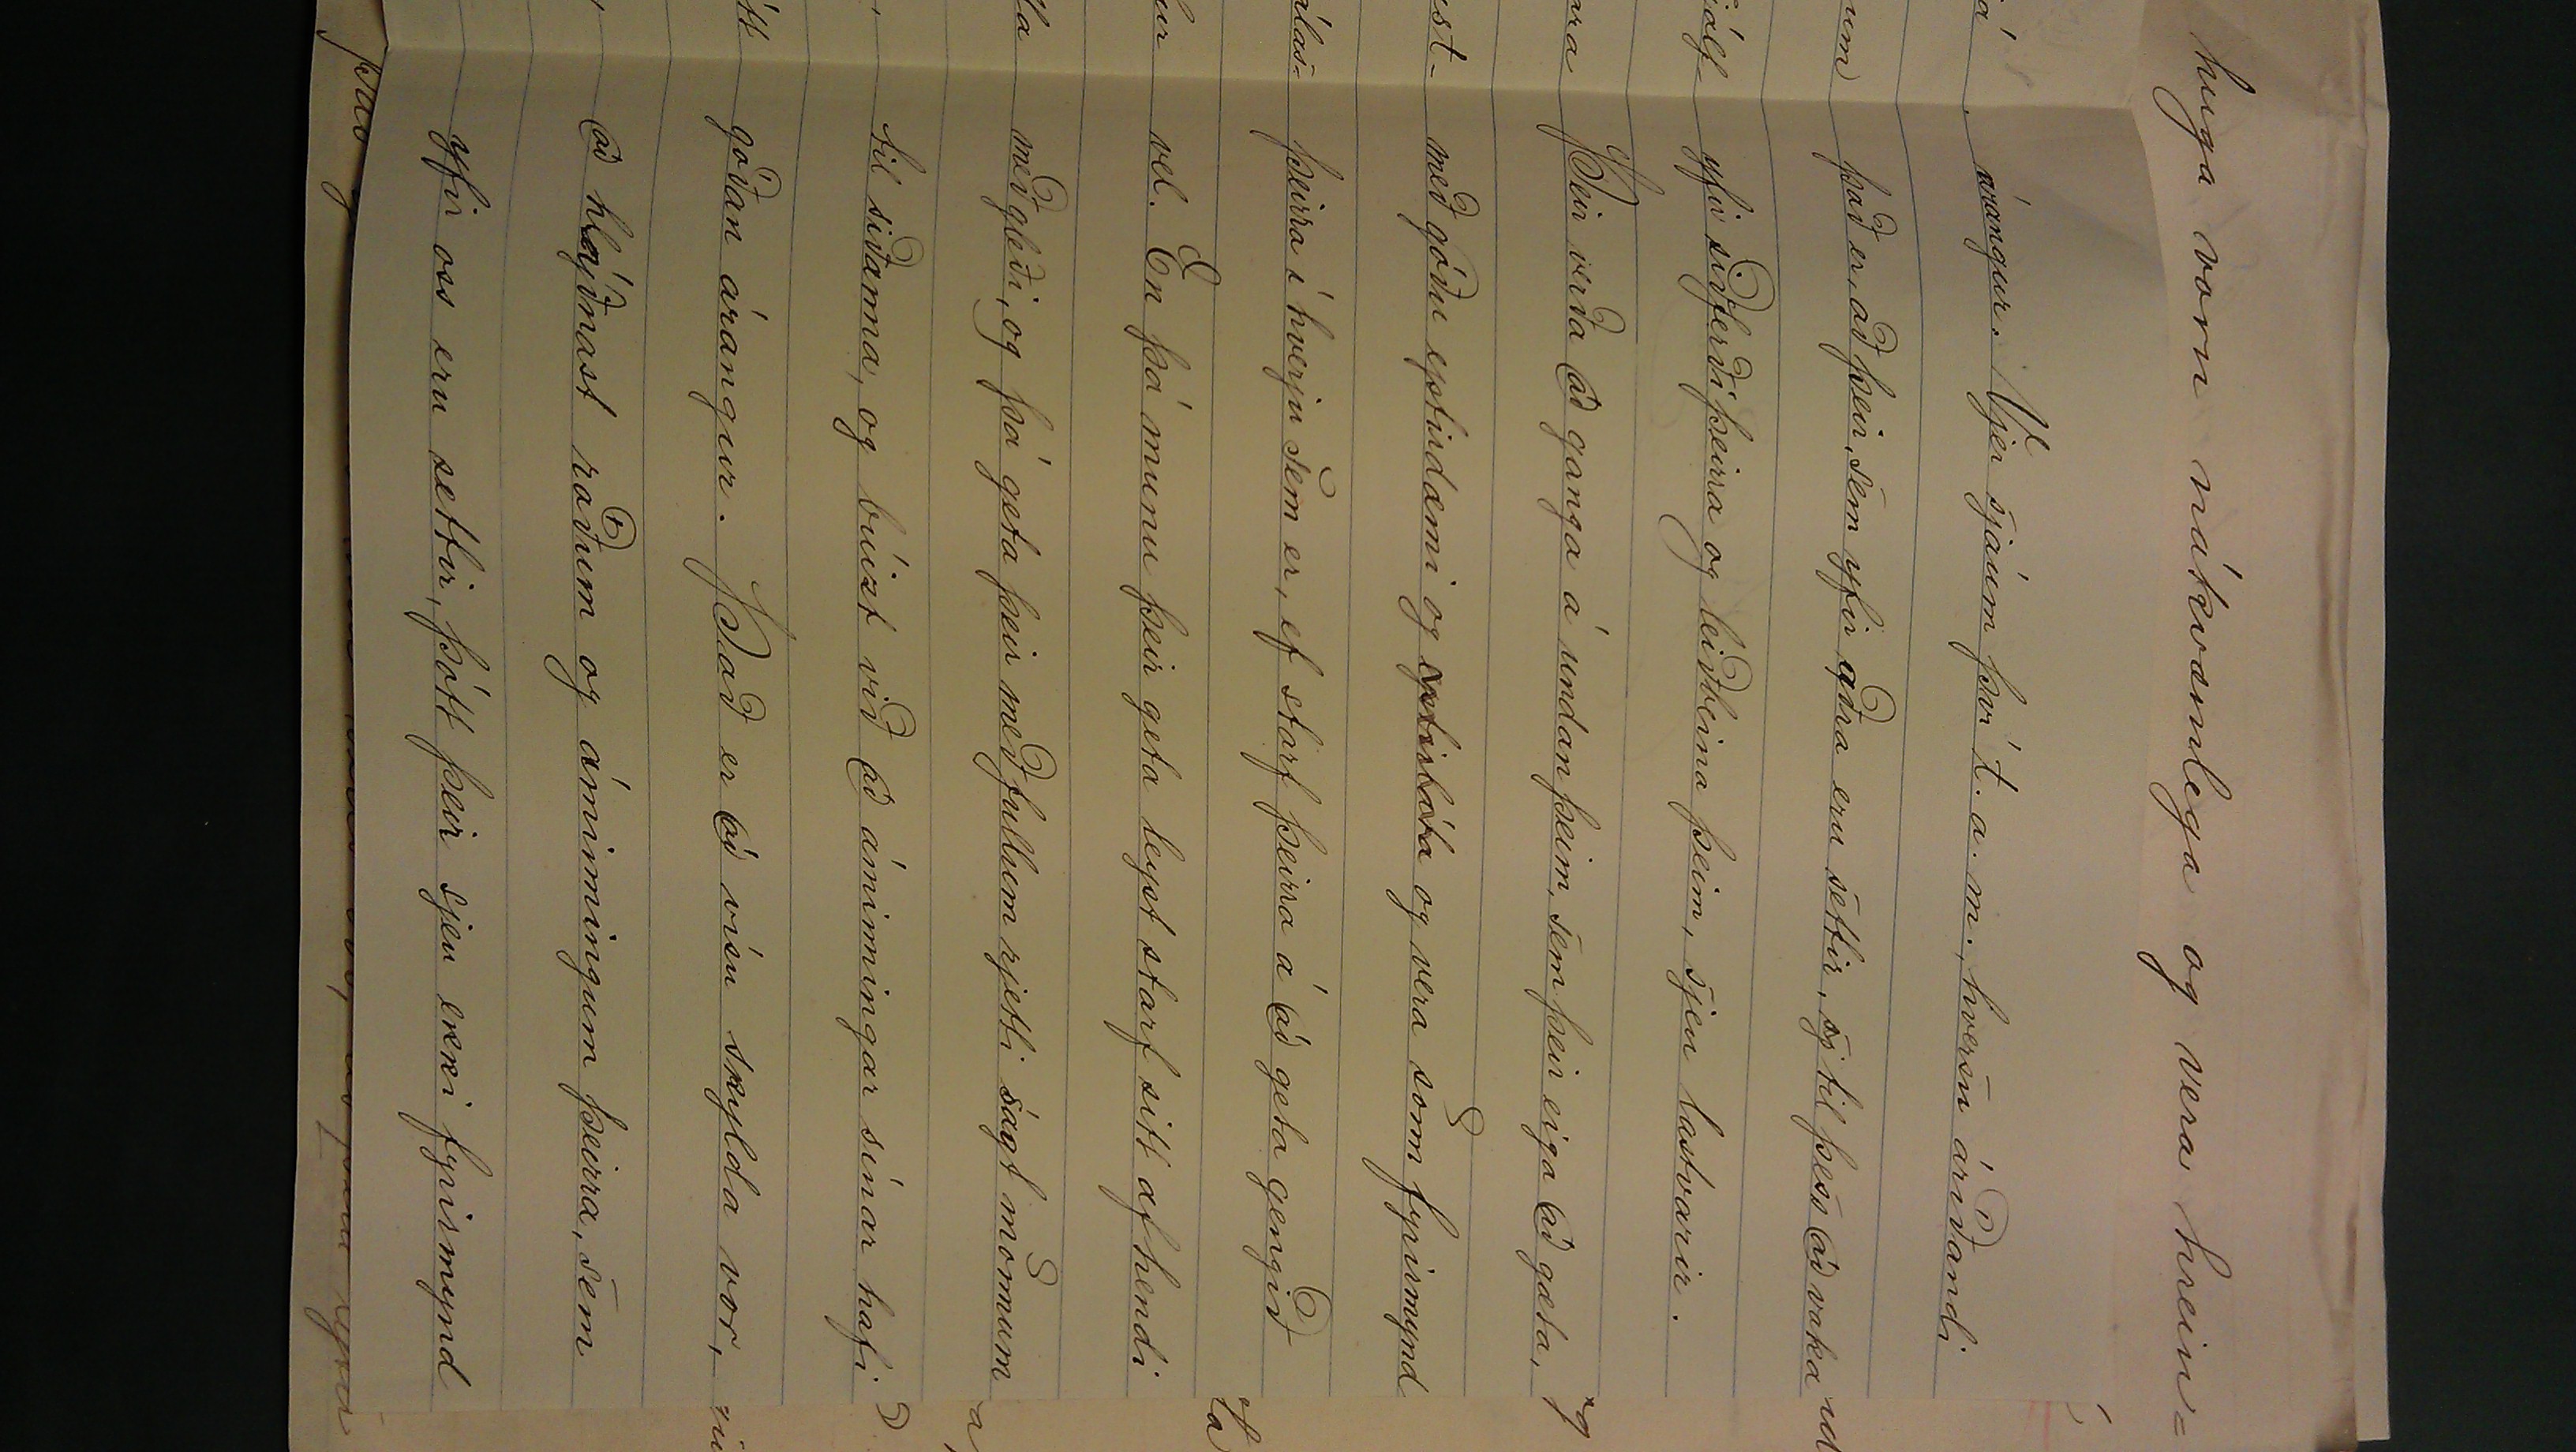 huga vorn nákvæmlega og vera hrein=
árangur. Vjer sjáum því t. a. m., hversu áríðandi
það er, að þeir, sem yfir aðra eru settir, og til þess að vaka
yfir siðferði þeirra og leiðbeina þeim, sjeu lastvarir.
Þeir verða að ganga á undan þeim, sem þeir eiga að gæta,
með góðu eptirdæmi og eptirbáta og vera sönn fyrirmynd
þeirra í hverju sem er, ef starf þeirra á að geta gengið
vel. En þá munu þeir geta leyst starf sitt af hendi
með gleði, og þá geta þeir með fullum rjetti sagt mönnum
til siðanna, og búizt við að áminningar sínar hafi
góðan árangur. Það er að vísu skylda vor,
að hlýðnast ráðum og áminningum þeirra, sem
yfir oss eru settir, þótt þeir sjeu ekki fyrirmynd